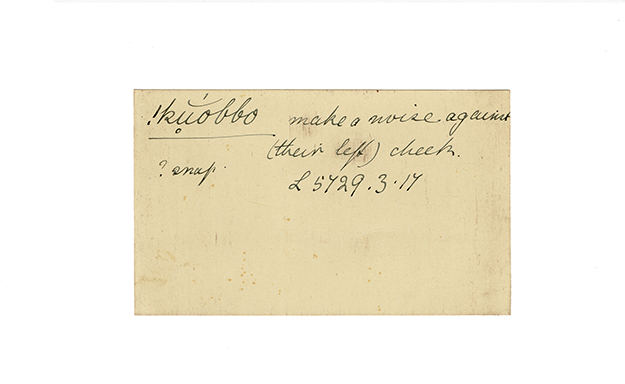 !kụ̆óbbo make a noise against
(their left) cheek.
? snap.
L 5729.3.17